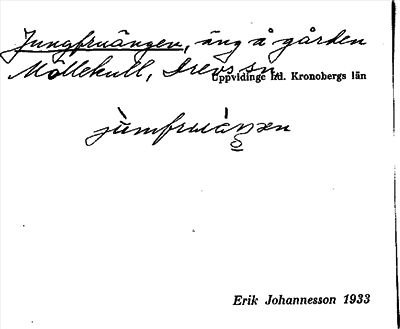 Jungfruängen, äng å gården
Möllekull, Drevs sn
Uppvidinge hd. Kronobergs län
jùmfruàŋən
Erik Johannesson 1933